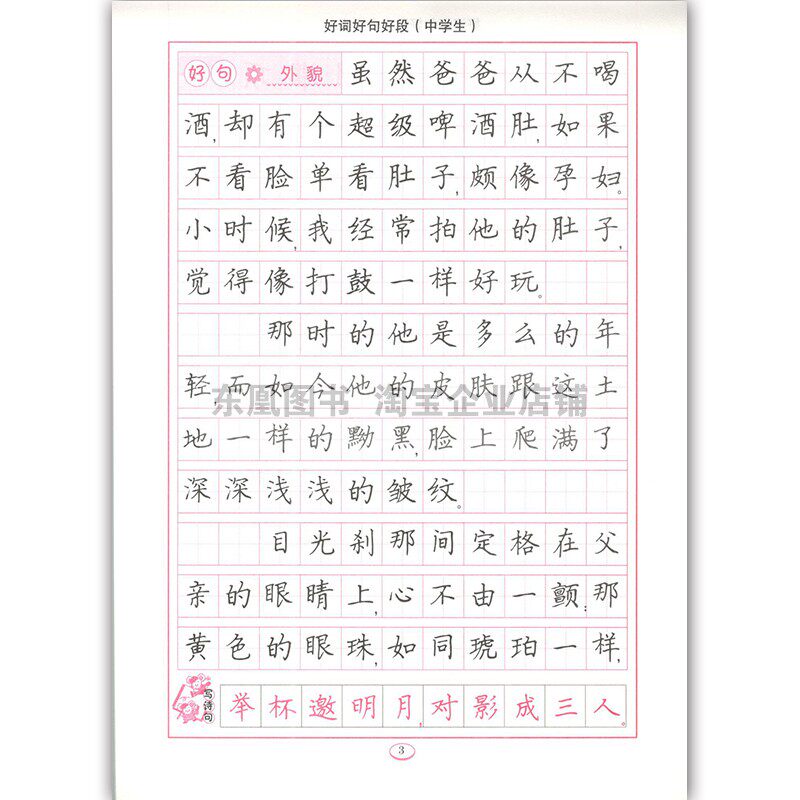 好词好句好段（中学生）
好句 外貌 虽然爸爸从不喝
酒,却有个超级啤酒肚,如果
不看脸单看肚子,颇像孕妇。
小时候,我经常拍他的肚子,
觉得像打鼓一样好玩。
那时的他是多么的年
轻,而如今他的皮肤跟这土
地一样的黝黑,脸上爬满了
深深浅浅的皱纹。
东凰图书 淘宝企业店铺
目光刹那间定格在父
亲的眼睛上,心不由一颤:那
黄色的眼珠,如同琥珀一样,
写诗句 举杯邀明月,对影成三人。
3